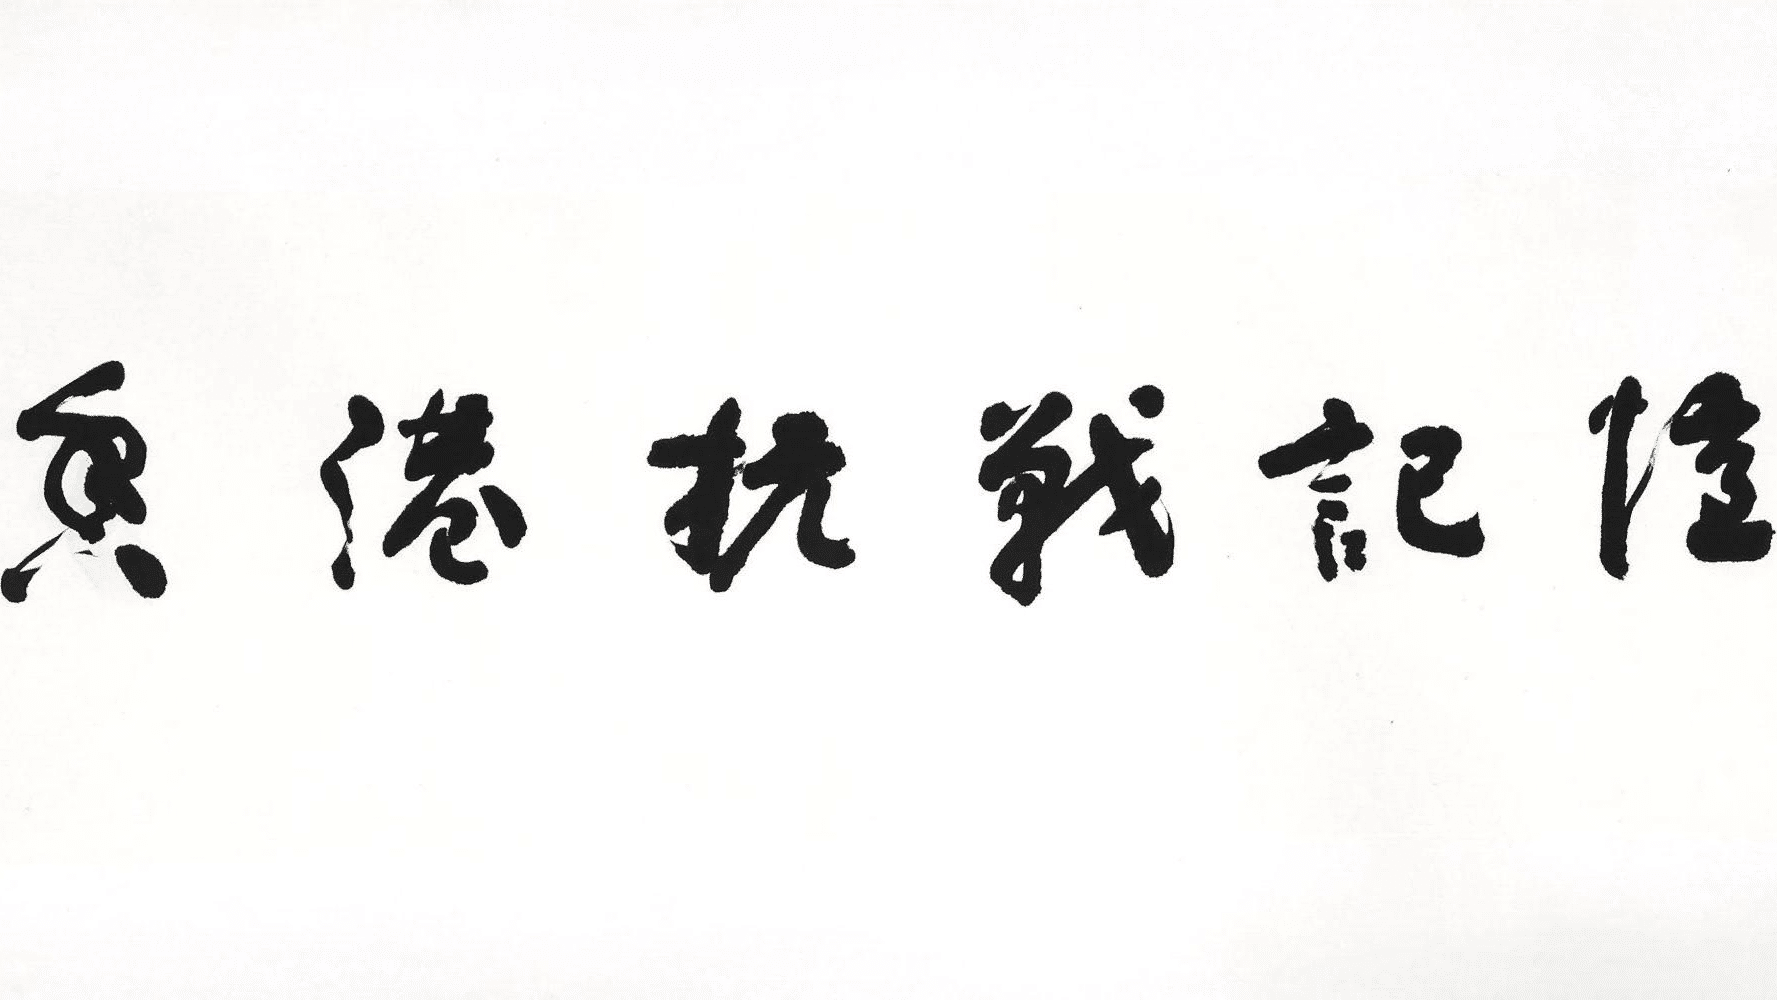 香港抗戰記憶